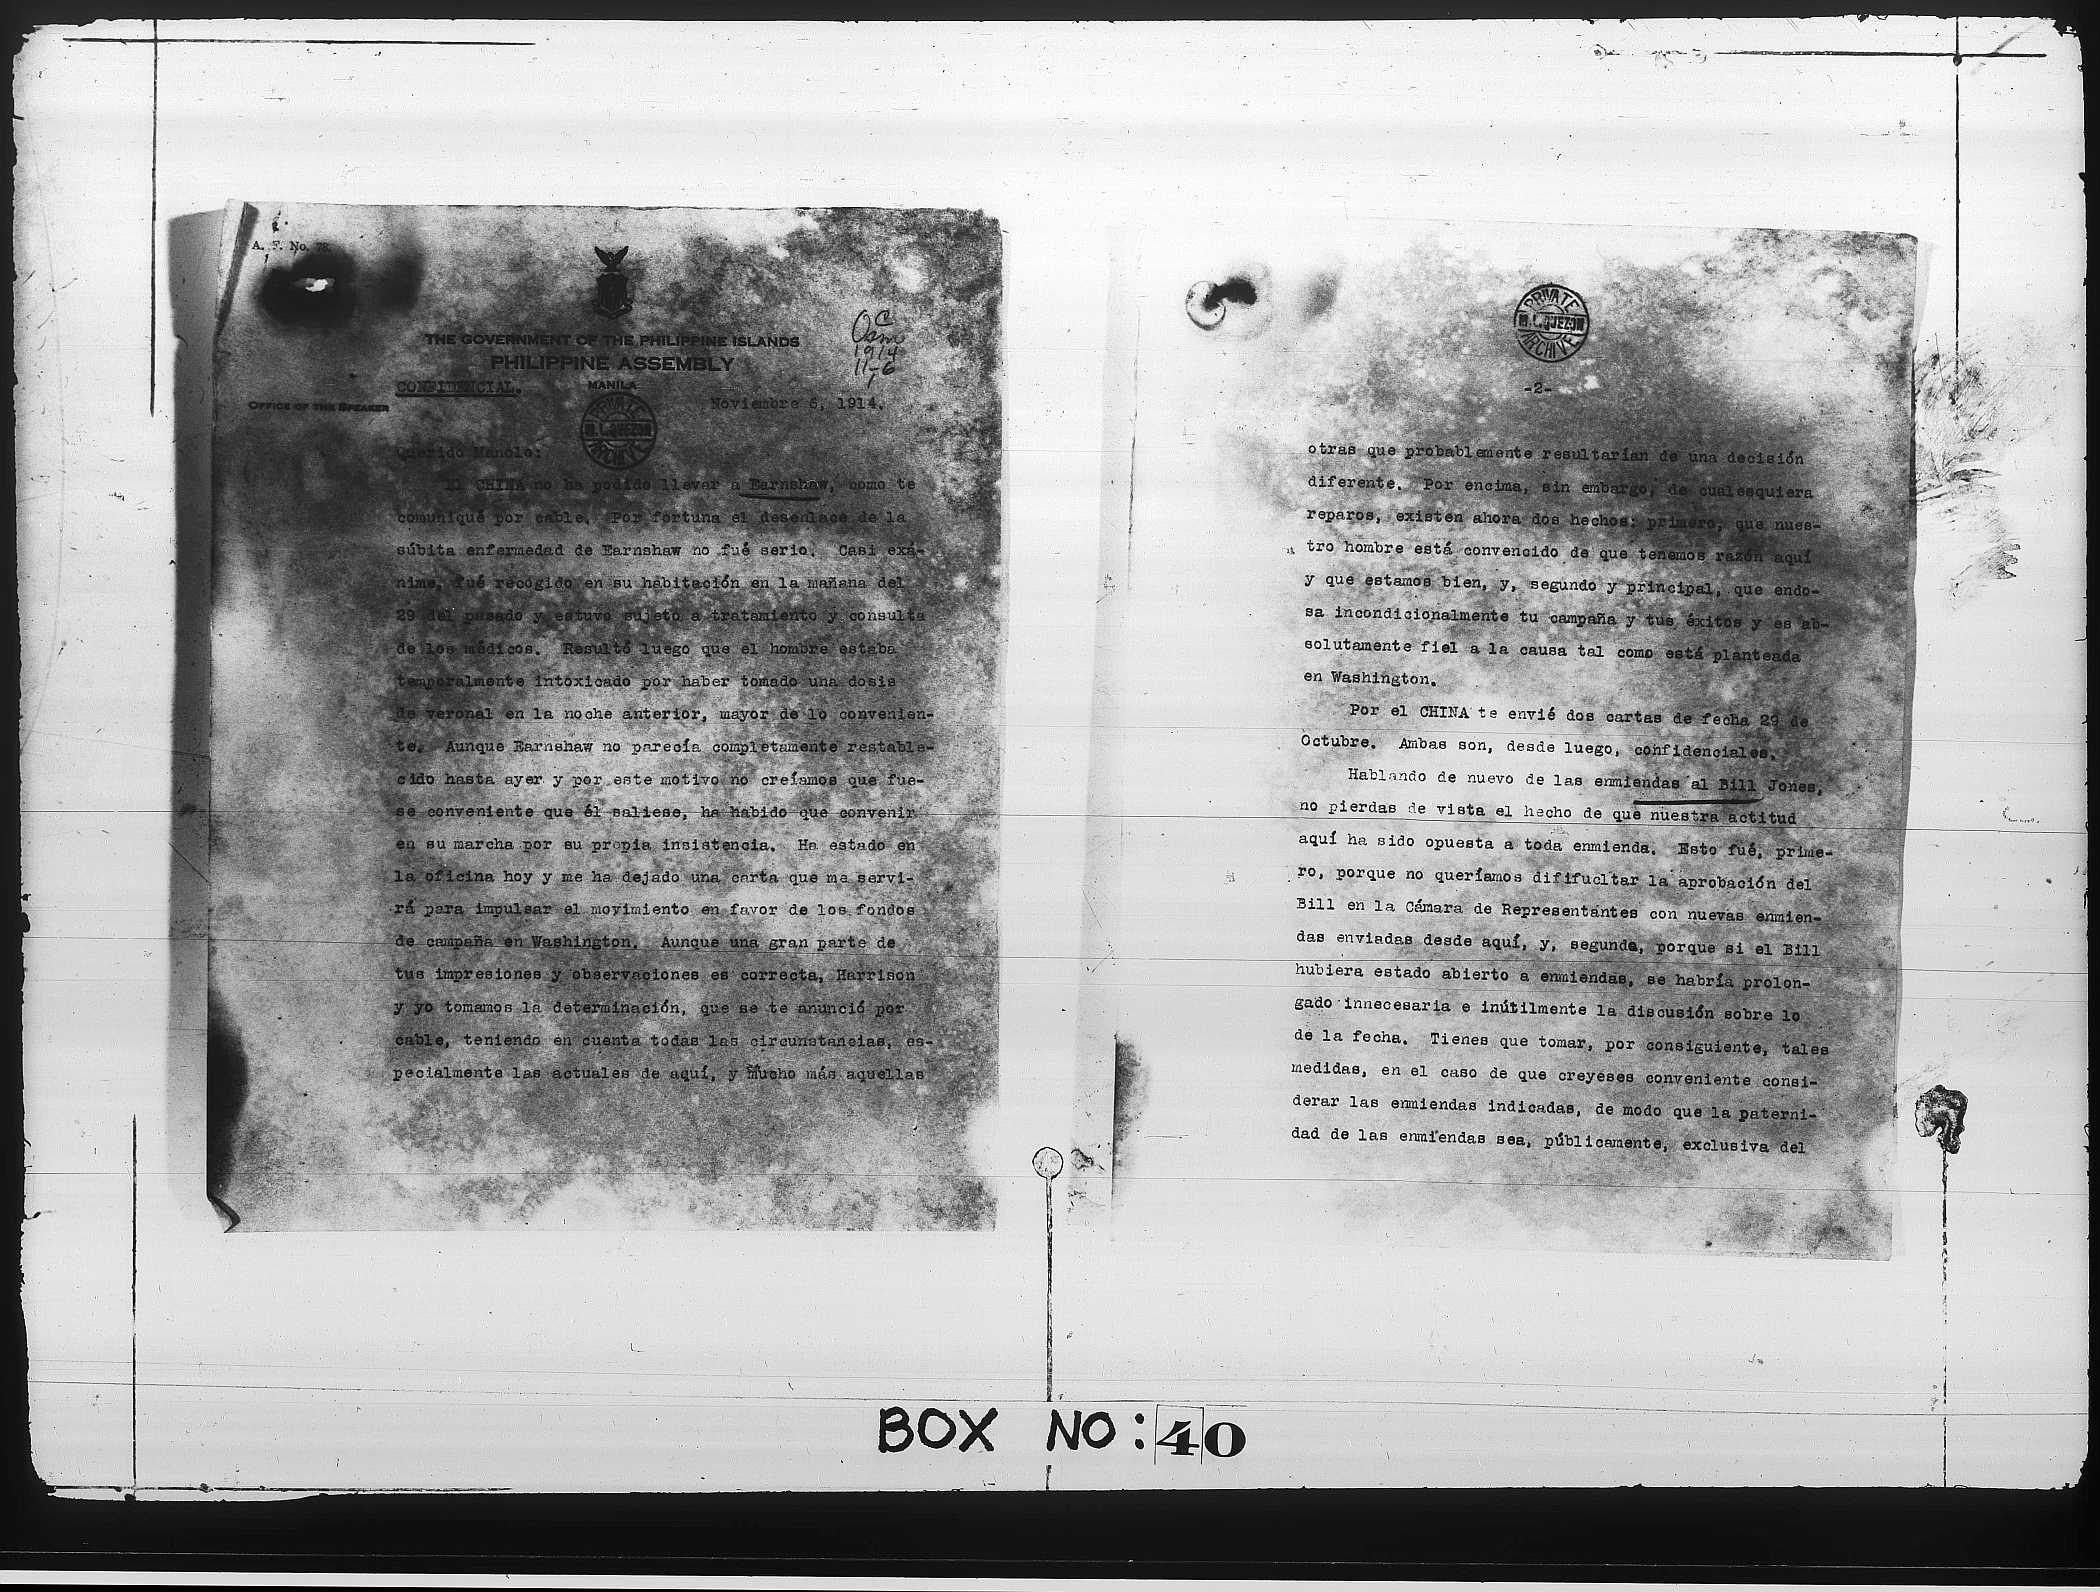 A. F. No. 78
THE GOVERNMENT OF THE PHILIPPINE ISLANDS
PHILIPPINE ASSEMBLY
MANILA
C
Osm
1914
11-6
CONFIDENCIAL.
OFFICE OF THE SPEAKER
Noviembre 6, 1914.
PRIVATE
M. L. QUEZON
ARCHIVE
Querido Manolo:
El CHINA no ha podido llevar a Earnshaw, como te
comuniqué por cable. Por fortuna el desenlace de la
súbita enfermedad de Earnshaw no fué serio. Casi exá-
nime, fué recogido en su habitación en la mañana del
29 del pasado y estuvo sujeto a tratamiento y consulta
de los médicos. Resultó luego que el hombre estaba
temporalmente intoxicado por haber tomado una dosis
de veronal en la noche anterior, mayor de lo convenien-
te. Aunque Earnshaw no parecía completamente restable-
cido hasta ayer y por este motivo no creíamos que fue-
se conveniente que él saliese, ha habido que convenir
en su marcha por su propia insistencia. Ha estado en
la oficina hoy y me ha dejado una carta que me servi-
rá para impulsar el movimiento en favor de los fondos
de campaña en Washington. Aunque una gran parte de
tus impresiones y observaciones es correcta, Harrison
y yo tomamos la determinación, que se te anunció por
cable, teniendo en cuenta todas las circunstancias, es-
pecialmente las actuales de aquí, y mucho más aquellas
PRIVATE
M. L. QUEZON
ARCHIVE
-2-
otras que probablemente resultarían de una decisión
diferente. Por encima, sin embargo, de cualesquiera
reparos, existen ahora dos hechos: primero, que nues-
tro hombre está convencido de que tenemos razón aquí
y que estamos bien, y, segundo y principal, que endo-
sa incondicionalmente tu campaña y tus éxitos y es ab-
solutamente fiel a la causa tal como está planteada
en Washington.
Por el CHINA te envié dos cartas de fecha 29 de
Octubre. Ambas son, desde luego, confidenciales.
Hablando de nuevo de las enmiendas al Bill Jones,
no pierdas de vista el hecho de que nuestra actitud
aquí ha sido opuesta a toda enmienda. Esto fué, prime-
ro, porque no queríamos difífucltar la aprobación del
Bill en la Cámara de Representantes con nuevas enmien-
das enviadas desde aquí, y, segunda, porque si el Bill
hubiera estado abierto a enmiendas, se habría prolon-
gado innecesaria e inútilmente la discusión sobre lo
de la fecha. Tienes que tomar, por consiguiente, tales
medidas, en el caso de que creyeses conveniente consi-
derar las enmiendas indicadas, de modo que la paterni-
dad de las enmiendas sea, públicamente, exclusiva del
BOX NO: 40